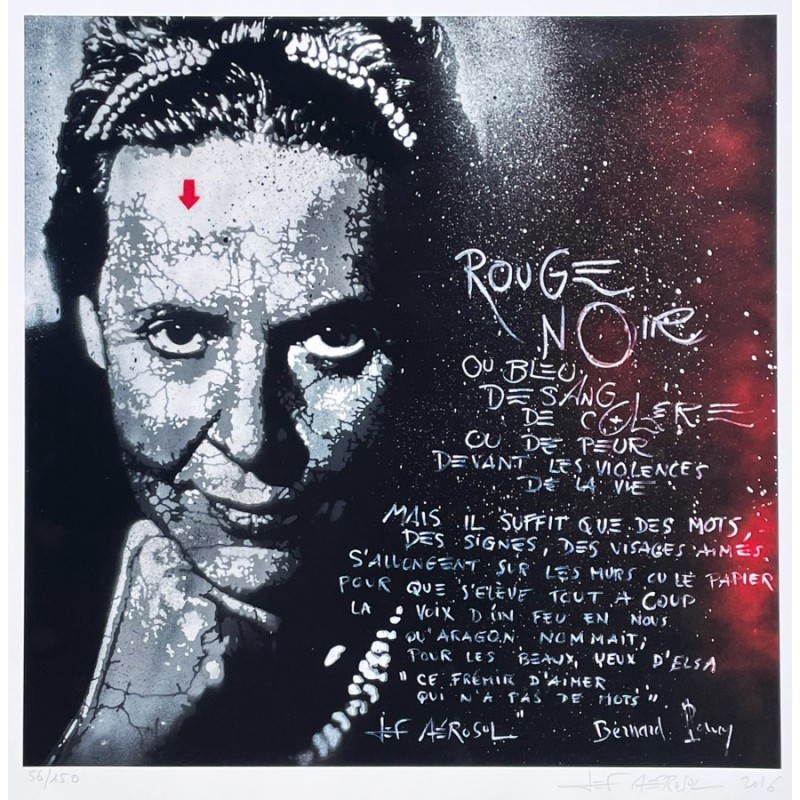 ROUGE
NOIR
OU BLEU,
DE SANG
DE COLÈRE
OU DE PEUR
DEVANT LES VIOLENCES
DE LA VIE
MAIS IL SUFFIT QUE DES MOTS,
DES SIGNES, DES VISAGES AIMÉS
S'ALLONGENT SUR LES MURS OU LE PAPIER
POUR QUE S'ELÈVE TOUT A COUP
LA VOIX D'UN FEU EN NOUS
QU'ARAGON NOMMAIT,
POUR LES BEAUX YEUX D'ELSA
" CE FRÉMIR D'AIMER
QUI N'A PAS DE MOTS"
JEF AÉROSOL Bernard
56/150 JEF AÉROSOL 2016